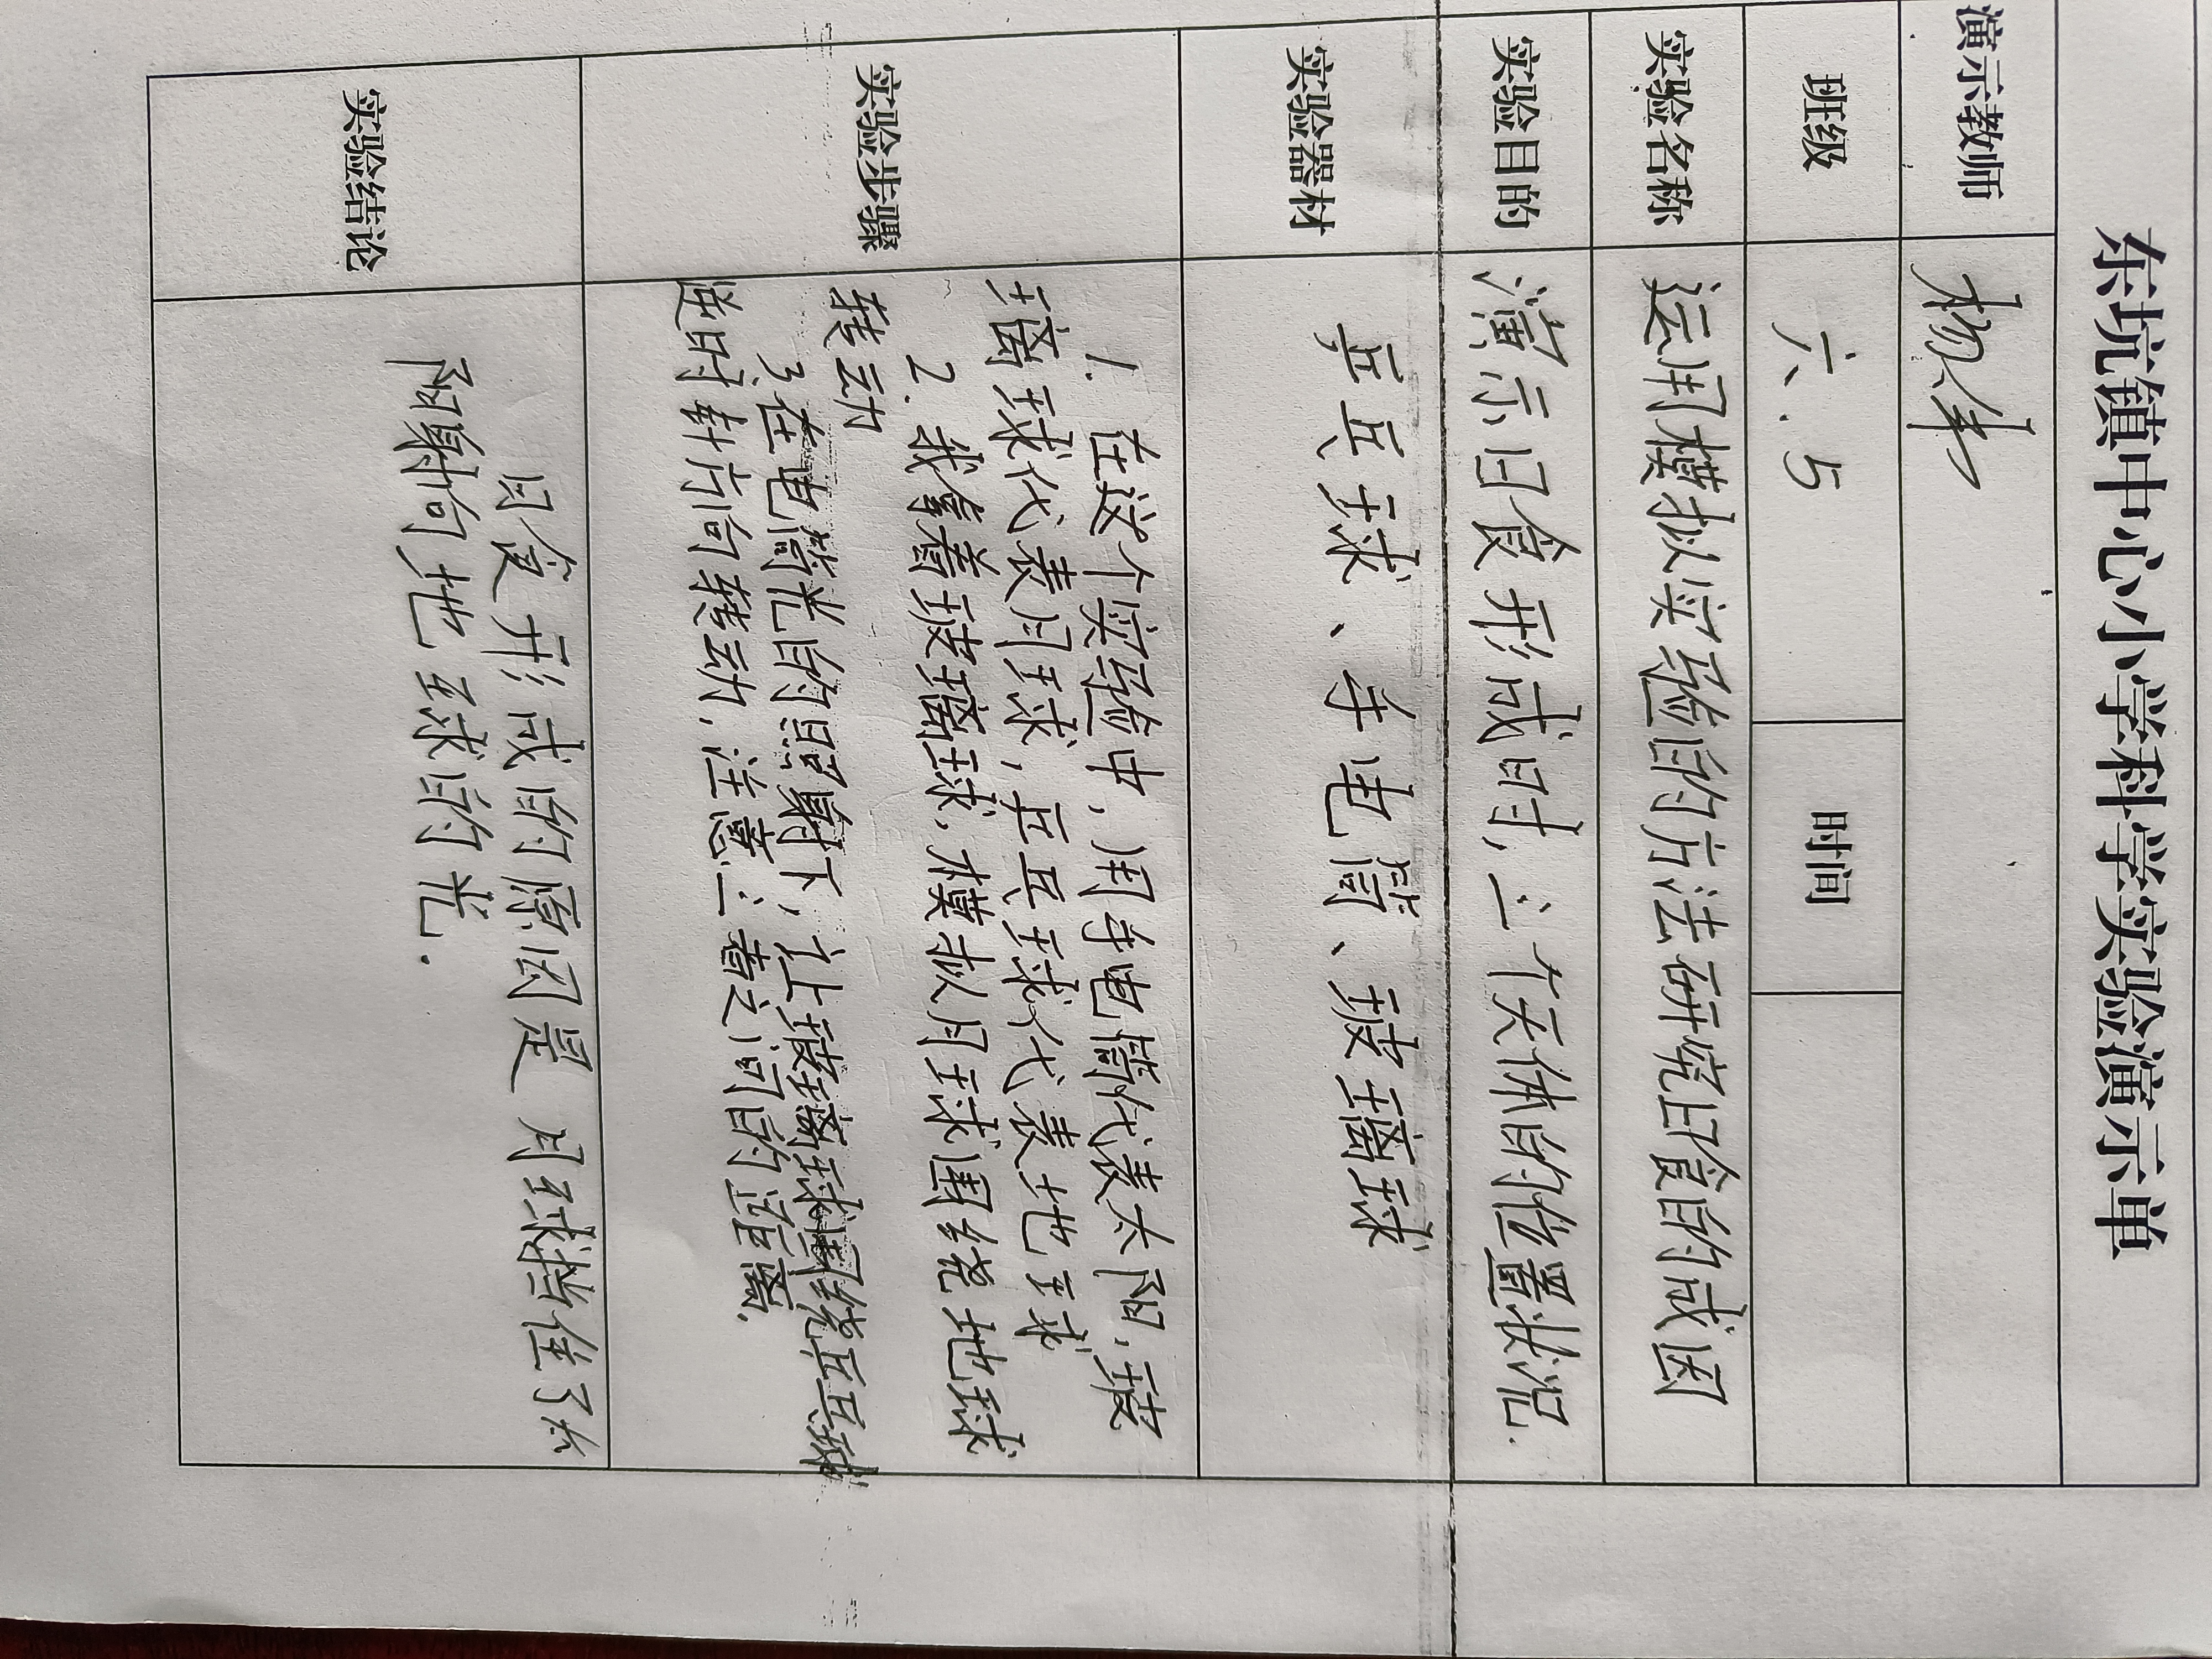 东坑镇中心小学科学实验演示单
演示教师 杨伟
班级 六.5 时间
实验名称 运用模拟实验的方法研究日食的成因
实验目的 演示日食形成时,三个天体的位置状况.
实验器材 乒乓球、手电筒、玻璃球
实验步骤
1. 在这个实验中,用手电筒代表太阳,玻
璃球代表月球,乒乓球代表地球
2. 我拿着玻璃球,模拟月球围绕地球
转动
3. 在电筒光的照射下,让玻璃球围绕乒乓球
逆时针方向转动,注意三者之间的距离.
实验结论
日食形成的原因是月球挡住了太
阳射向地球的光.